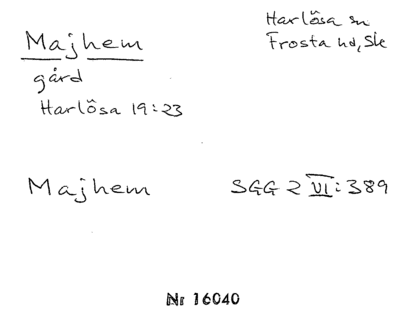 Majhem
Harlösa sn
Frosta hd, Sk
gård
Harlösa 19:23
Majhem
SGG 2 VI: 389
Nr 16040